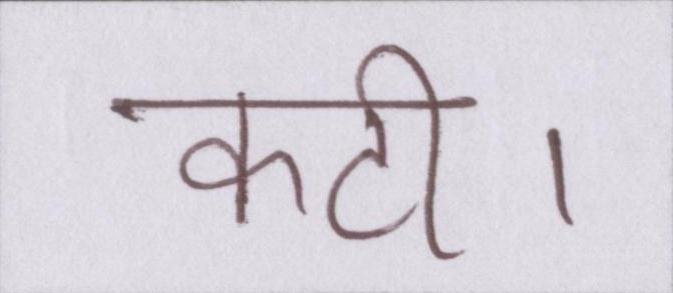 कटी।